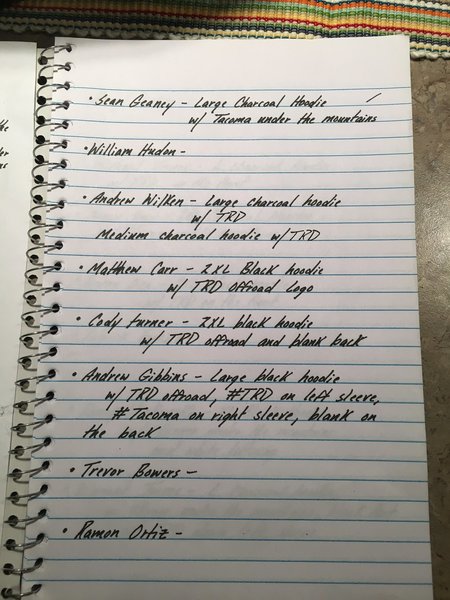 • Sean Geaney - Large Charcoal Hoodie
w/ Tacoma under the mountains
• William Hudon -
• Andrew Wilken - Large charcoal hoodie
w/ TRD
Medium charcoal hoodie w/ TRD
• Matthew Carr - 2XL Black hoodie
w/ TRD Offroad Logo
• Cody turner - 2XL black hoodie
w/ TRD offroad and blank back
• Andrew Gibbins - Large black hoodie
w/ TRD offroad, #TRD on left sleeve,
#Tacoma on right sleeve, blank on
the back
• Trevor Bowers -
• Ramon Ortiz -